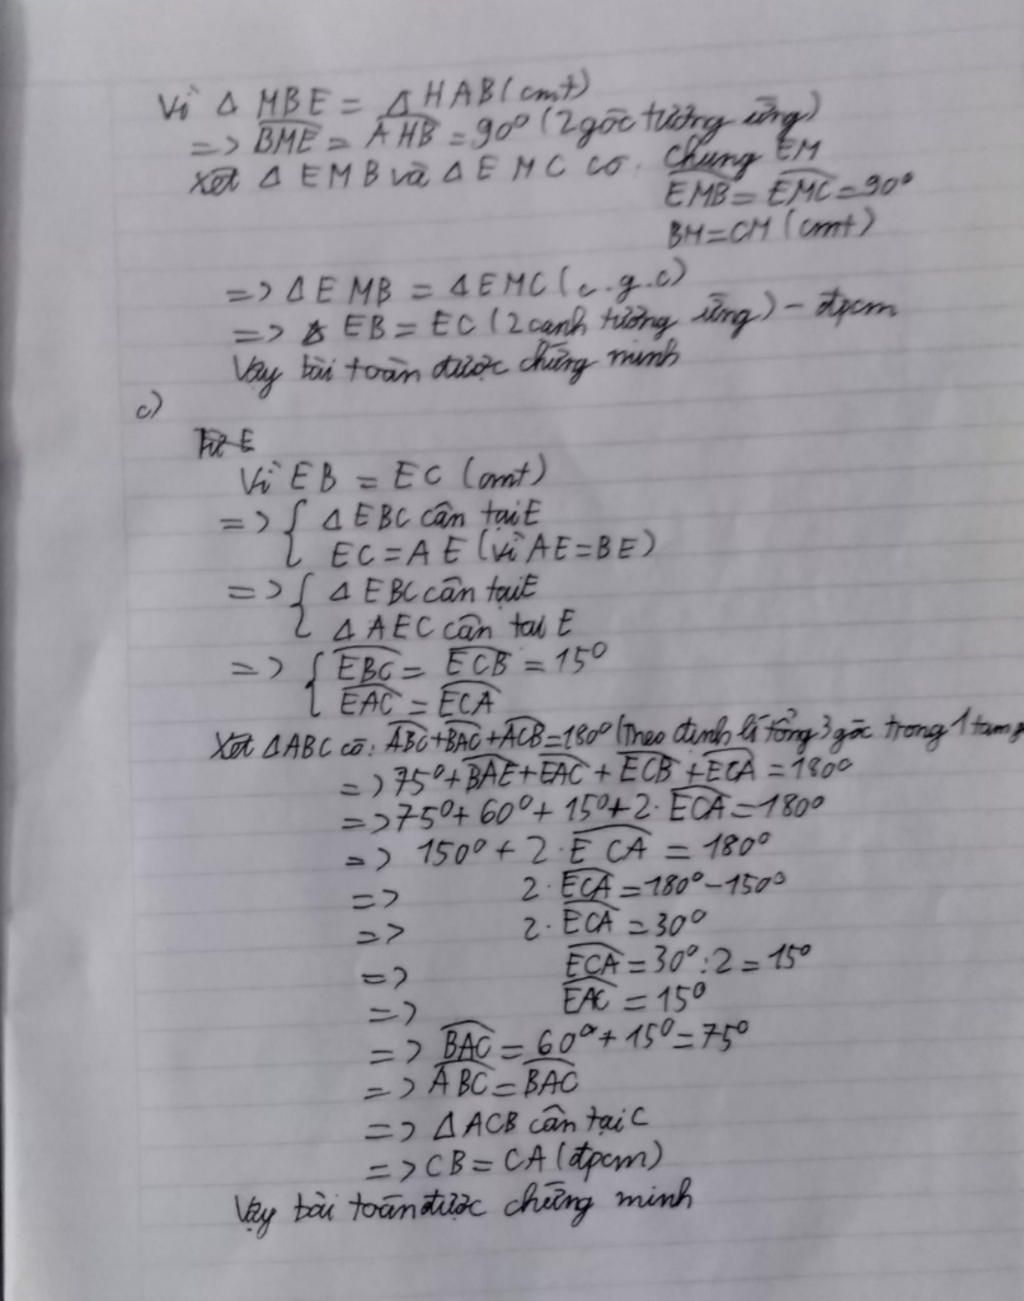 Vì Δ MBE = Δ HAB (cmt)
=> BME = AHB = 90° (2 góc tương ứng)
Xét Δ EMB và Δ EMC có: chung EM
EMB = EMC = 90°
BM = CM (cmt)
=> Δ EMB = Δ EMC (c.g.c)
=> EB = EC (2 cạnh tương ứng) - đpcm
Vậy bài toán được chứng minh
c)
Từ E
Vì EB = EC (cmt)
=> { Δ EBC cân tại E
EC = AE (vì AE = BE)
=> { Δ EBC cân tại E
Δ AEC cân tại E
=> { EBC = ECB = 15°
EAC = ECA
Xét ΔABC có: ABC + BAC + ACB = 180° (Theo định lí tổng 3 góc trong 1 tam g
=> 75° + BAE + EAC + ECB + ECA = 180°
=> 75° + 60° + 15° + 2. ECA = 180°
=> 150° + 2. ECA = 180°
=> 2. ECA = 180° - 150°
=> 2. ECA = 30°
=> ECA = 30° : 2 = 15°
=> EAC = 15°
=> BAC = 60° + 15° = 75°
=> ABC = BAC
=> Δ ACB cân tại C
=> CB = CA (đpcm)
Vậy bài toán được chứng minh